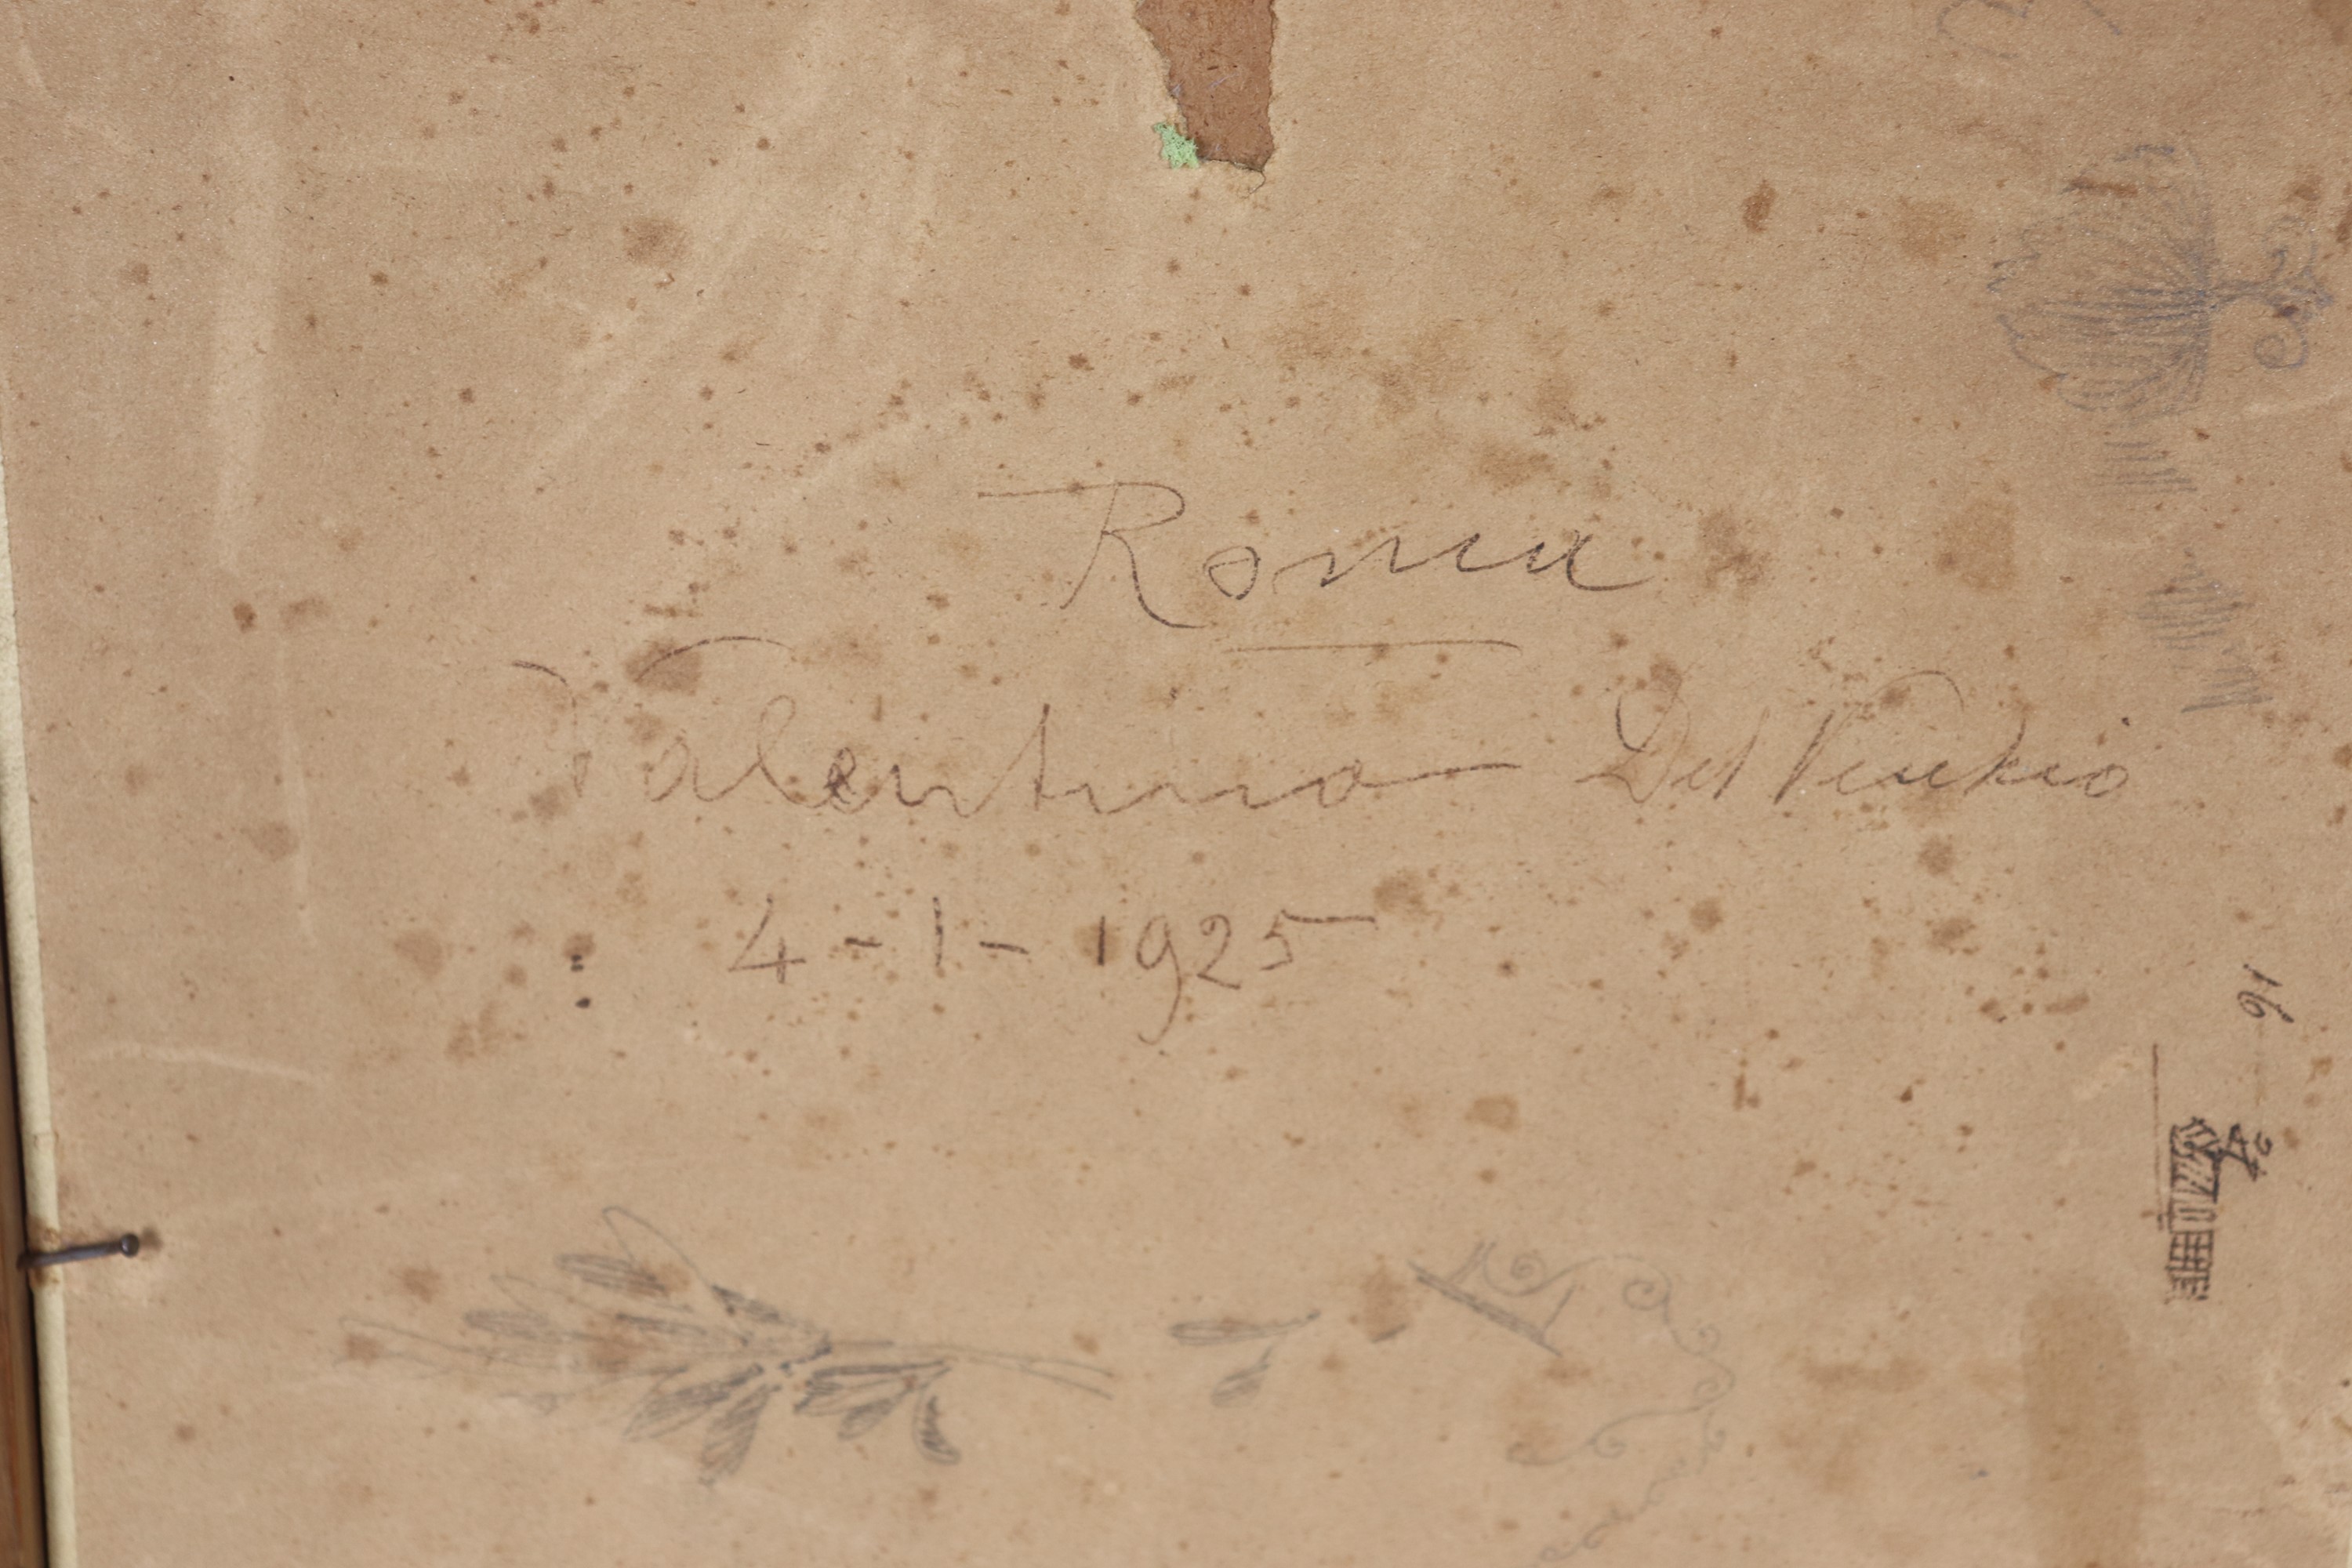 Roma
Valentino Del Vecchio
4-1-1925
16